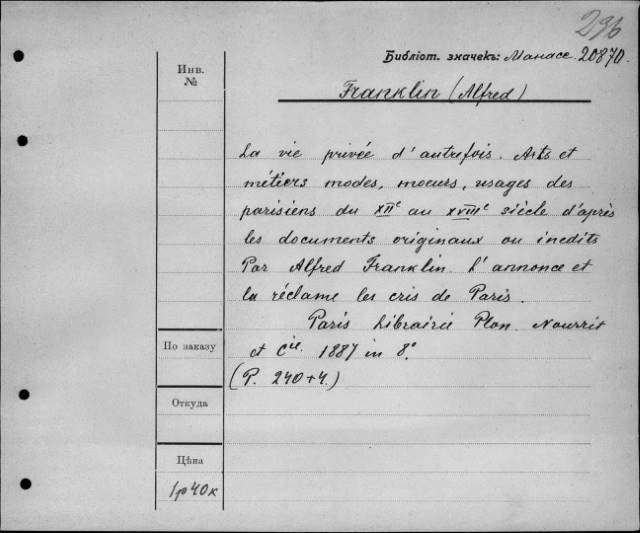 296
Библіот. значекъ: Манасе. 20870.
Инв.
№
Franklin (Alfred)
La vie privée d'autrefois. Arts et
métiers modes, moeurs, usages des
parisiens du XIIe au XVIIIe siècle d'après
les documents originaux ou inedits
Par Alfred Franklin. L'annonce et
la réclame les cris de Paris.
Paris Librairie Plon. Nourrit
et Cie. 1887 in 8°.
(P. 240+4.)
По заказу
Откуда
Цѣна
1р 40к